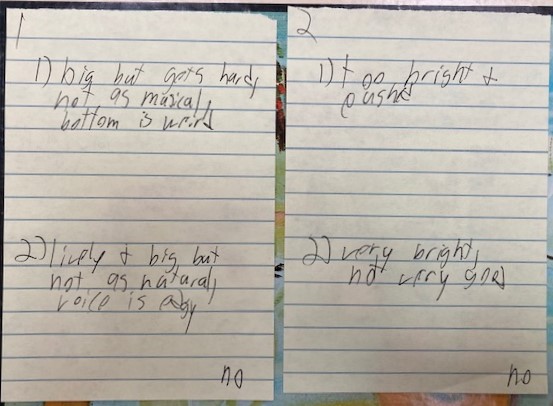 1
1) big but gets hard,
not as musical,
bottom is weird
2) lively & big but
not as natural,
voice is edgy
no
2
1) too bright &
pushed
2) very bright,
not very good
no